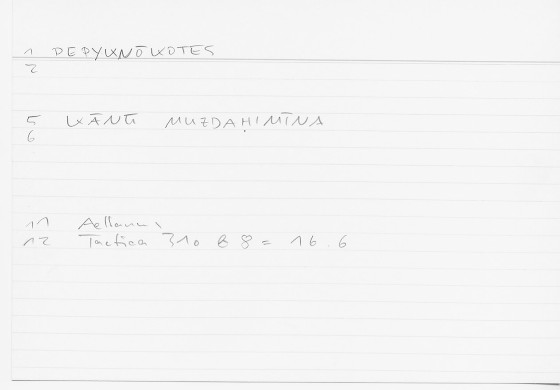 1 DEPYKNŌKOTES
2
5 KĀNĒ MUZDAHIMĪNA
6
11 Aeliani
12 Tactica 310 B 8 = 16.6